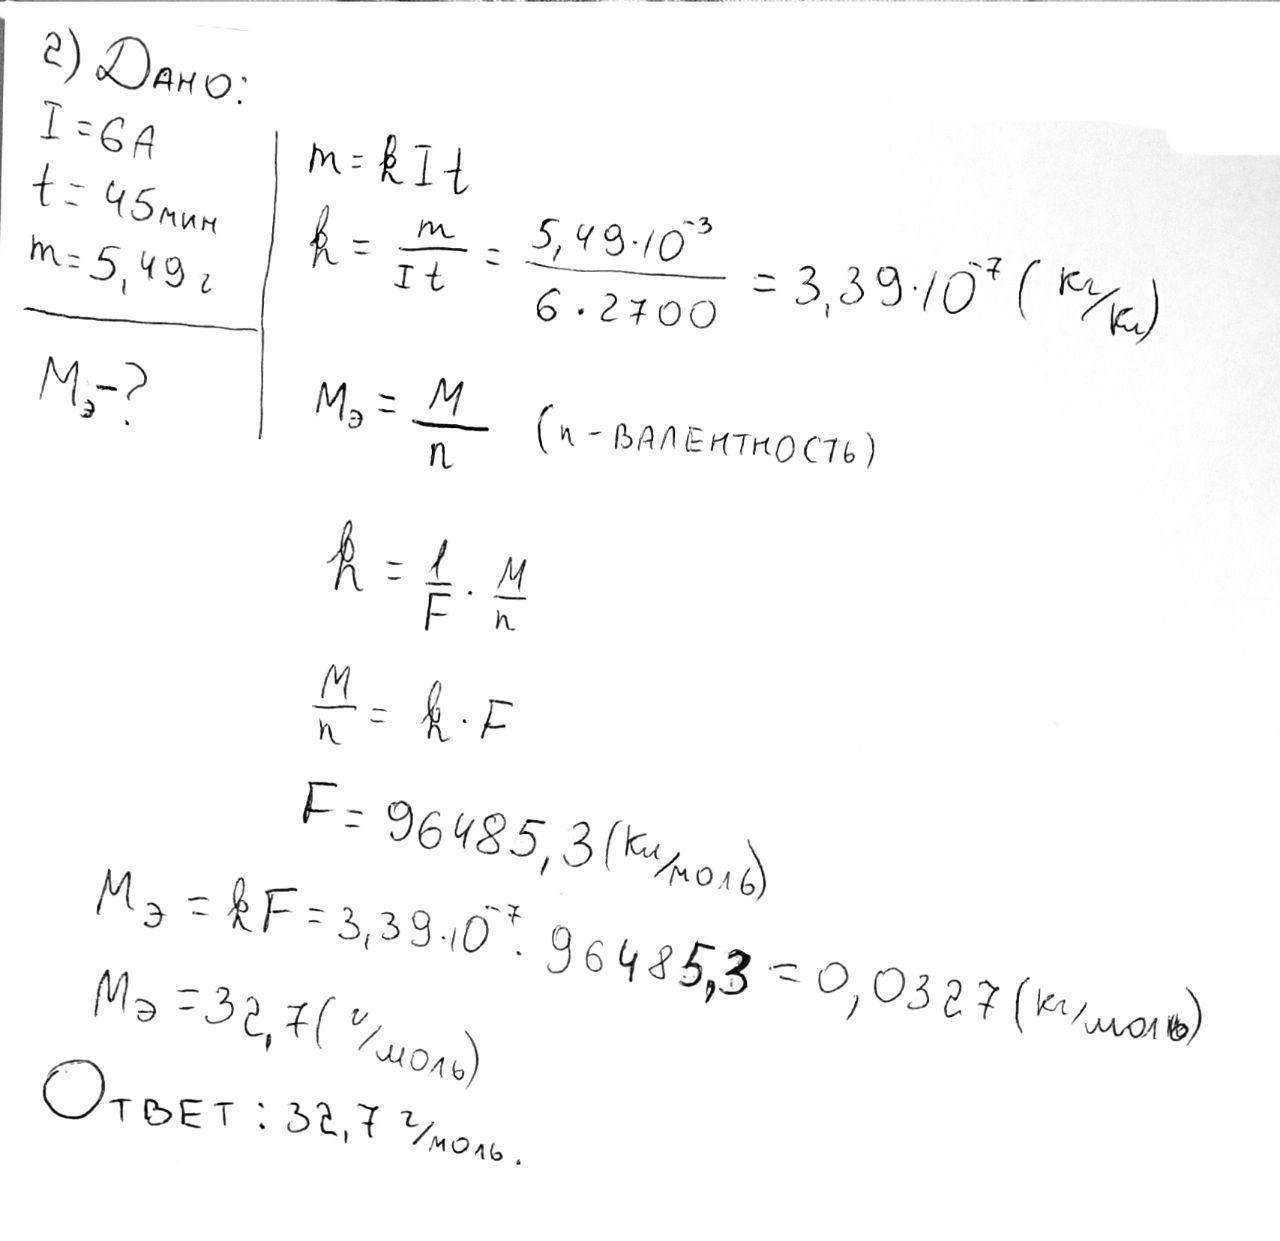 2) Дано:
I = 6А
t = 45мин
m = 5,49 г
Mэ - ?
m = kIt
k = m/It = 5,49·10⁻³/6·2700 = 3,39·10⁻⁷ (Кг/Кл)
Mэ = M/n (n - валентность)
k = 1/F · M/n
M/n = k · F
F = 96485,3 (Кл/моль)
Mэ = kF = 3,39·10⁻⁷ · 96485,3 = 0,0327 (кг/моль)
Mэ = 32,7 (г/моль)
Ответ: 32,7 г/моль.